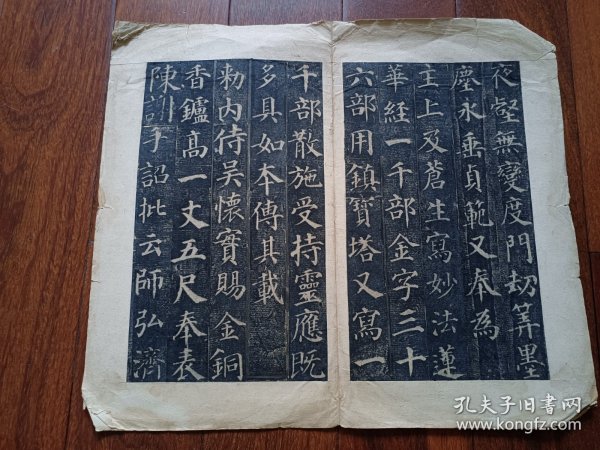 夜壑無變度門劫筭墨
塵永垂貞範又奉為
主上及蒼生寫妙法蓮
華經一千部金字三十
六部用鎮寶塔又寫一
千部散施受持靈應既
多具如本傳其載
勑內侍吳懷實賜金銅
香鑪高一丈五尺奉表
陳謝手詔批云師弘濟
孔夫子旧书网
www.kongfz.com